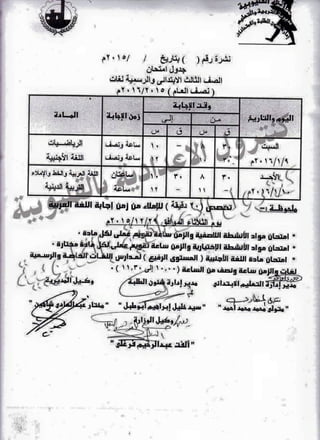 نشرة رقم ( ) بتاريخ / / ٢٠١٥م
جدول امتحان
الصف الثالث الابتدائى والرسمية لغات
( نصف العام ) ٢٠١٥/٢٠١٦م
اليوم والتاريخ وقت الإجابة زمن الإجابة المادة
من إلى
ق س ق س
السبت ٢٠١٦/١/٩م ساعة ونصف الرياضيات
ساعة ونصف اللغة الأجنبية
الأحد ٣٠ ٨ ٣٠ ١٠ ساعتان اللغة العربية والخط والإملاء
١١ ١٢ ساعة التربية الدينية
ملحوظة :- تخصص (٢٠ دقيقة) للإملاء من زمن إجابة اللغة العربية
يوم الثلاثاء الموافق ٢٠١٥/١٢/٢٩م
- امتحان مواد الأنشطة اللاصفية والزمن ساعة تقويم عملى لكل مادة .
- امتحان مواد الأنشطة الإختيارية والزمن ساعة تقويم عملى لكل مادة مختارة .
- امتحان مادة اللغة الأجنبية ( المستوى الرفيع ) لمدارس اللغات الخاصة والرسمية
لغات والزمن ساعة ونصف من الساعة (١٠,٠٠ إلى ١١,٣٠)
مدير إدارة التعليم الابتدائى مدير إدارة شئون الطلبة وكيل المديرية
متولى محمد محمد أحمد سيد خليل إبراهيم أبوطبل مختار عبدالهادى شاهين
وكيل الوزارة
ألفت عبدالرحيم فرغلى
كنترول الاعدادية بالقليوبية